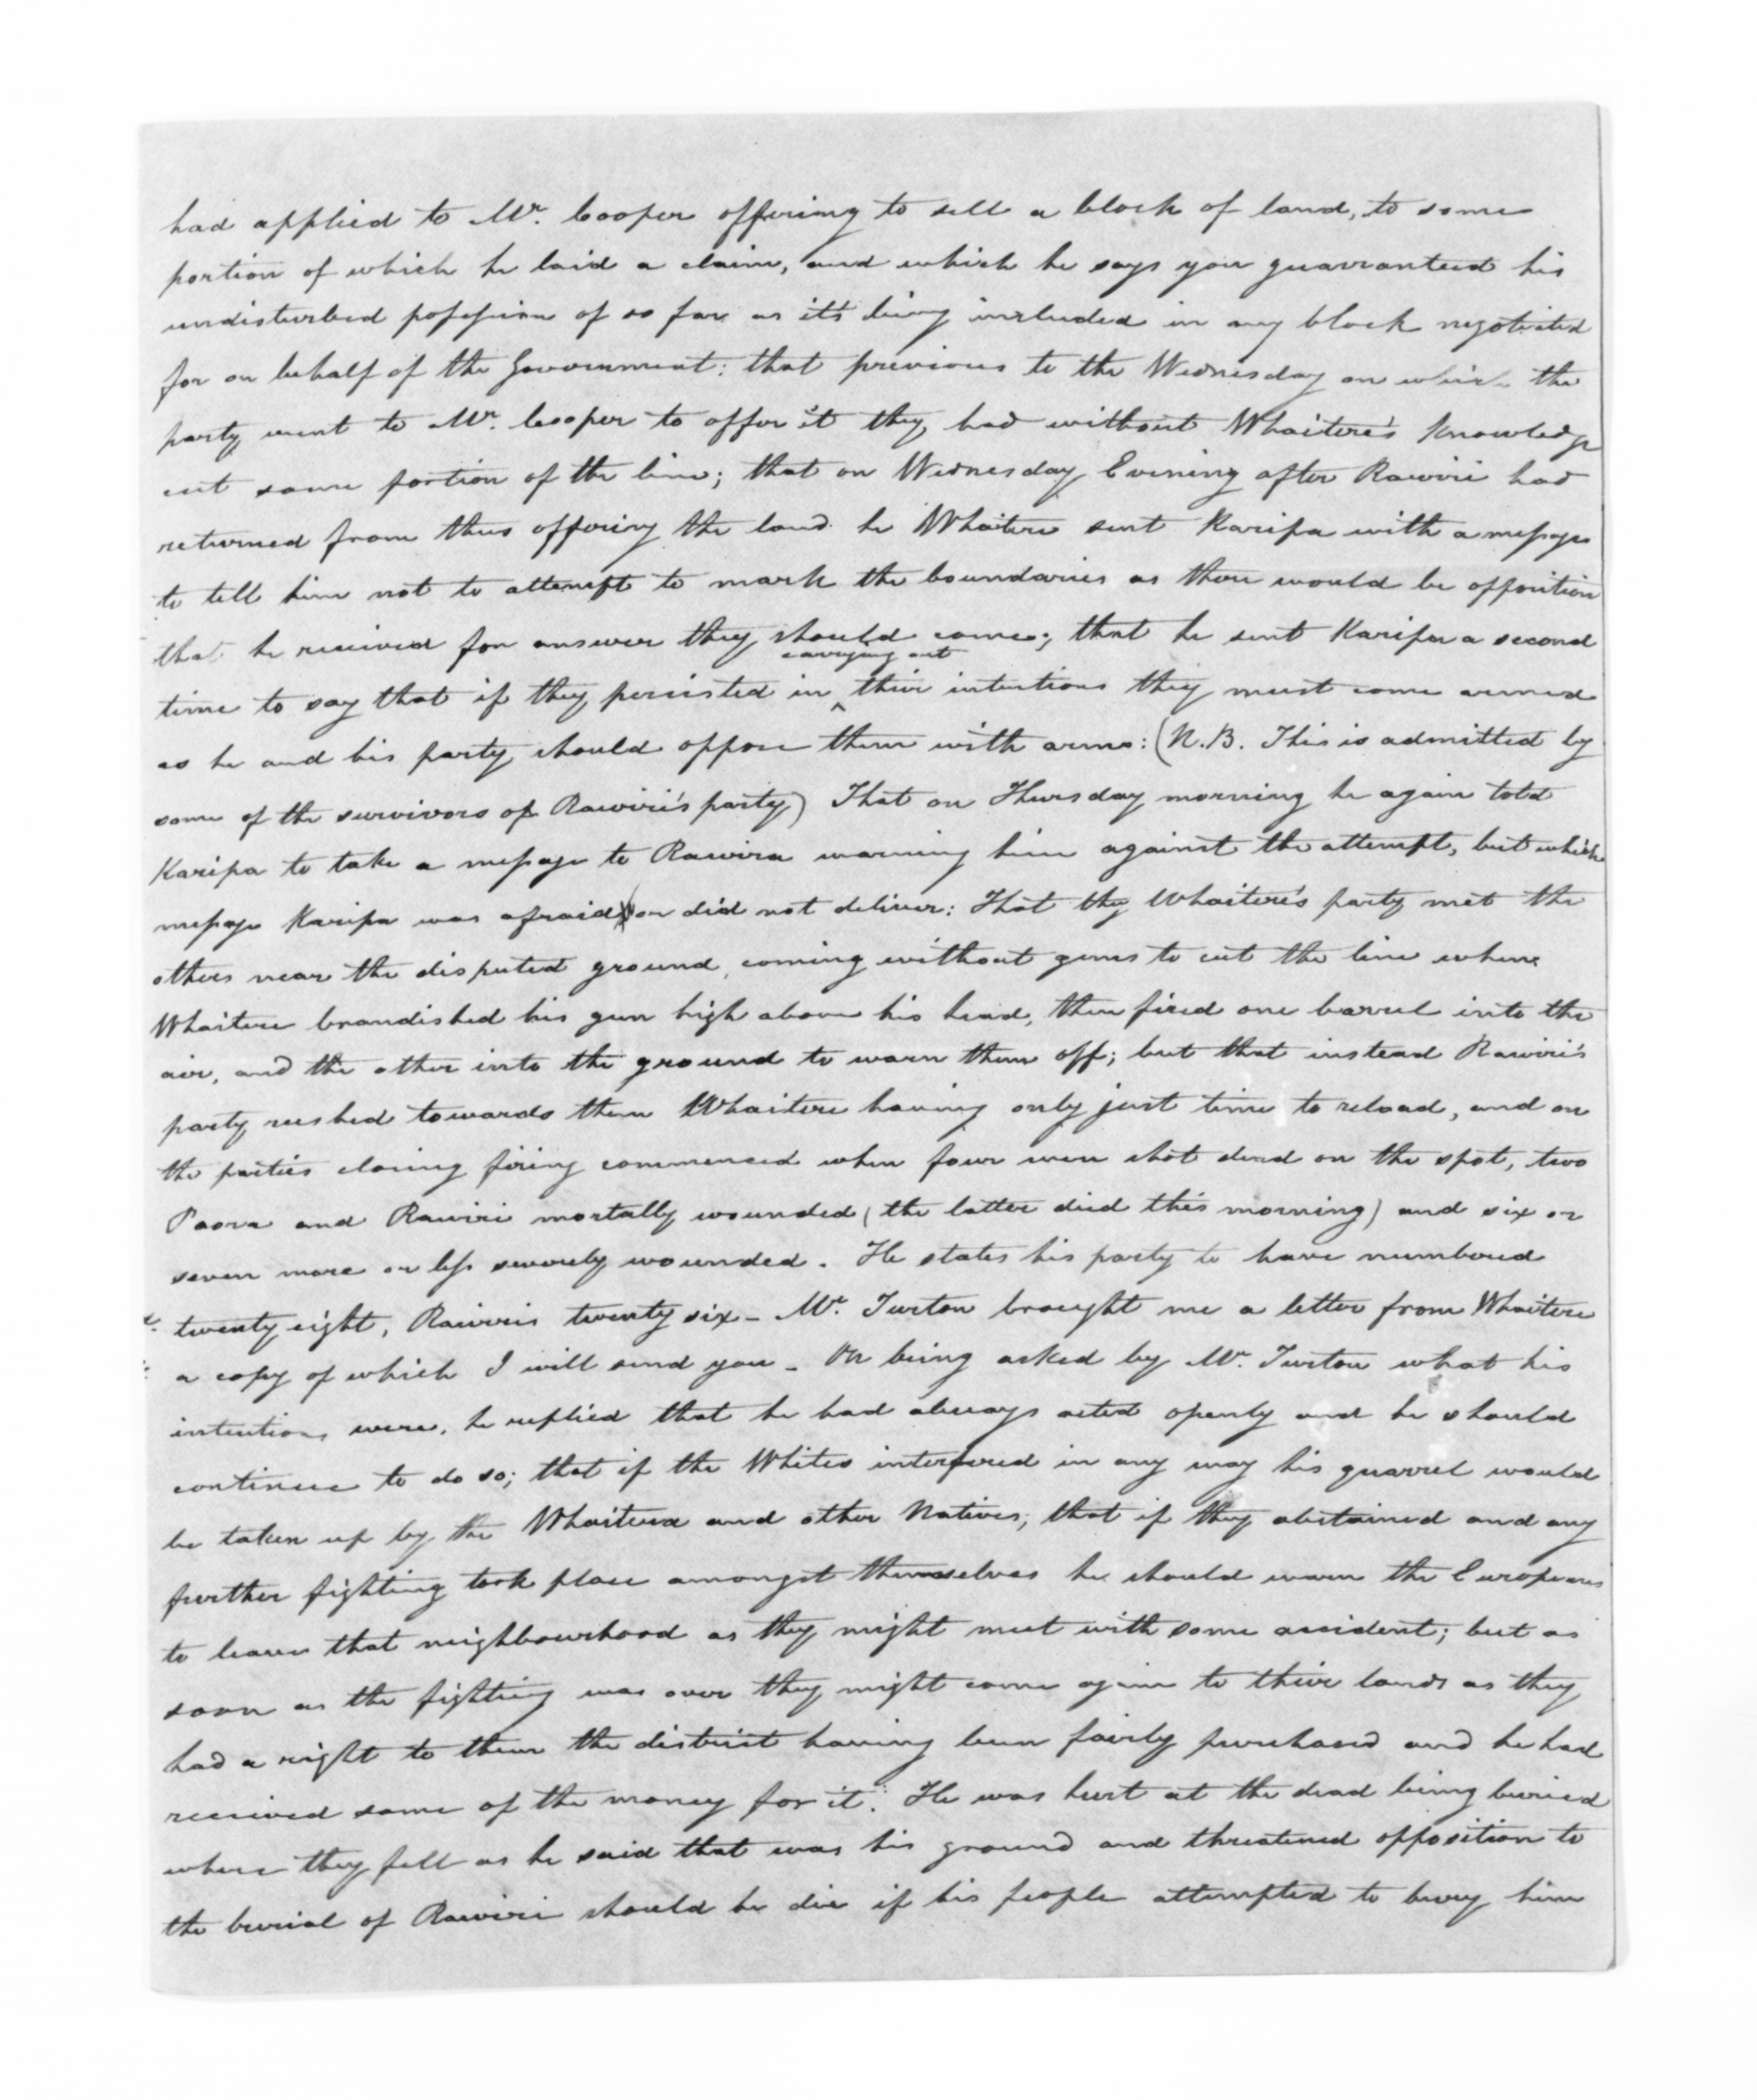 had applied to Mr. Cooper offering to sell a block of land, to some
portion of which he laid a claim, and which he says you guarranteed his
undisturbed possession of so far as it's being included in any block negotiated
for on behalf of the Government: that previous to the Wednesday on which the
party went to Mr. Cooper to offer it they had without Whaitere's knowledge
cut some portion of the line; that on Wednesday Evening after Rawiri had
returned from thus offering the land he Whaitere sent Karipa with a message
to tell him not to attempt to mark the boundaries as there would be opposition
that he received for answer they should come; that he sent Karipa a second
time to say that if they persisted in carrying out their intentions they must come armed
as he and his party should oppose them with arms: (N.B. This is admitted by
some of the survivors of Rawiri's party) That on Thursday morning he again told
Karipa to take a message to Rawira warning him against the attempt, but which
message Karipa was afraid or did not deliver: That they Whaitere's party met the
others near the disputed ground, coming without guns to cut the line when
Whaitere brandished his gun high above his head, then fired one barrel into the
air, and the other into the ground to warn them off; but that instead Rawiri's
party rushed towards them Whaitere having only just time to reload, and on
the parties closing firing commenced when four were shot dead on the spot, two
Paora and Rawiri mortally wounded (the latter died this morning) and six or
seven more or less severely wounded. He states his party to have numbered
twenty eight, Rawiris twenty six - Mr. Turton brought me a letter from Whaitere
a copy of which I will send you - On being asked by Mr. Turton what his
intentions were, he replied that he had always acted openly and he should
continue to do so; that if the Whites interfered in any way his quarrel would
be taken up by the Whaitera and other Natives; that if they abstained and any
further fighting took place amongst themselves he should warn the Europeans
to leave that neighbourhood as they might meet with some accident; but as
soon as the fighting was over they might come again to their lands as they
had a right to them the district having been fairly purchased and he had
received some of the money for it. He was hurt at the dead being buried
where they fell as he said that was his ground and threatened opposition to
the burial of Rawiri should he die if his people attempted to bury him